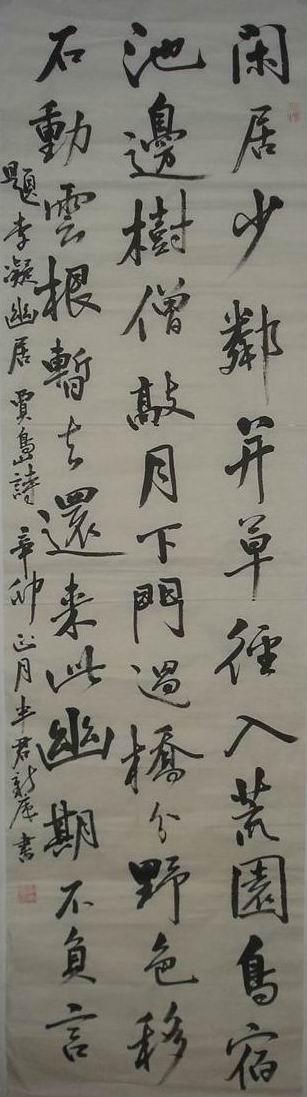 閑居少鄰并草徑入荒園鳥宿
池邊樹僧敲月下門過橋分野色移
石動雲根暫去還來此幽期不負言
題李凝幽居 賈島詩 辛卯正月半君
書